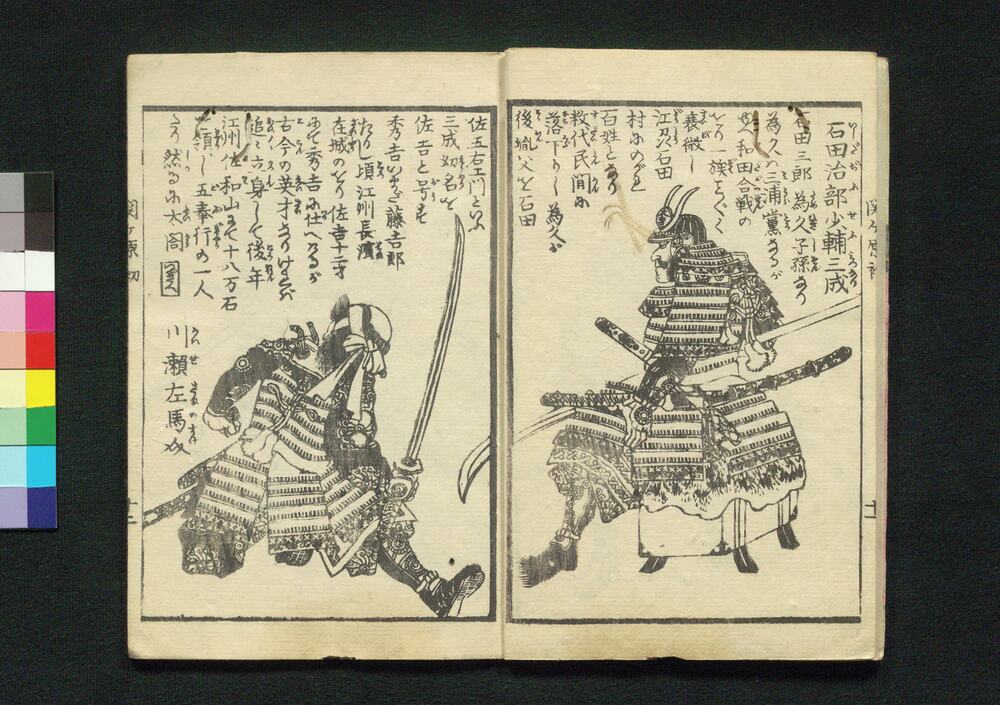 石田治部少輔三成
石田三郎為久子孫なり
為久ハ三浦黨なるが
和田合戦の
より一族こと〴〵く
衰微し
江刕石田
村にのがれ
百姓となり
数代民間に
落下りし為久が
後胤父を石田
佐五右エ門といふ
三成幼名を
佐吉と号す
秀吉いまだ藤吉郎
たりし頃江州長濱
在城のをり佐吉十三才
にて秀吉に仕へけるが
古今の英才なりければ
追々立身して後年
江州佐和山にて十八万石
を領し五奉行の一人
たり然るに大閤
川瀬左馬
関ヶ原
十一
十二